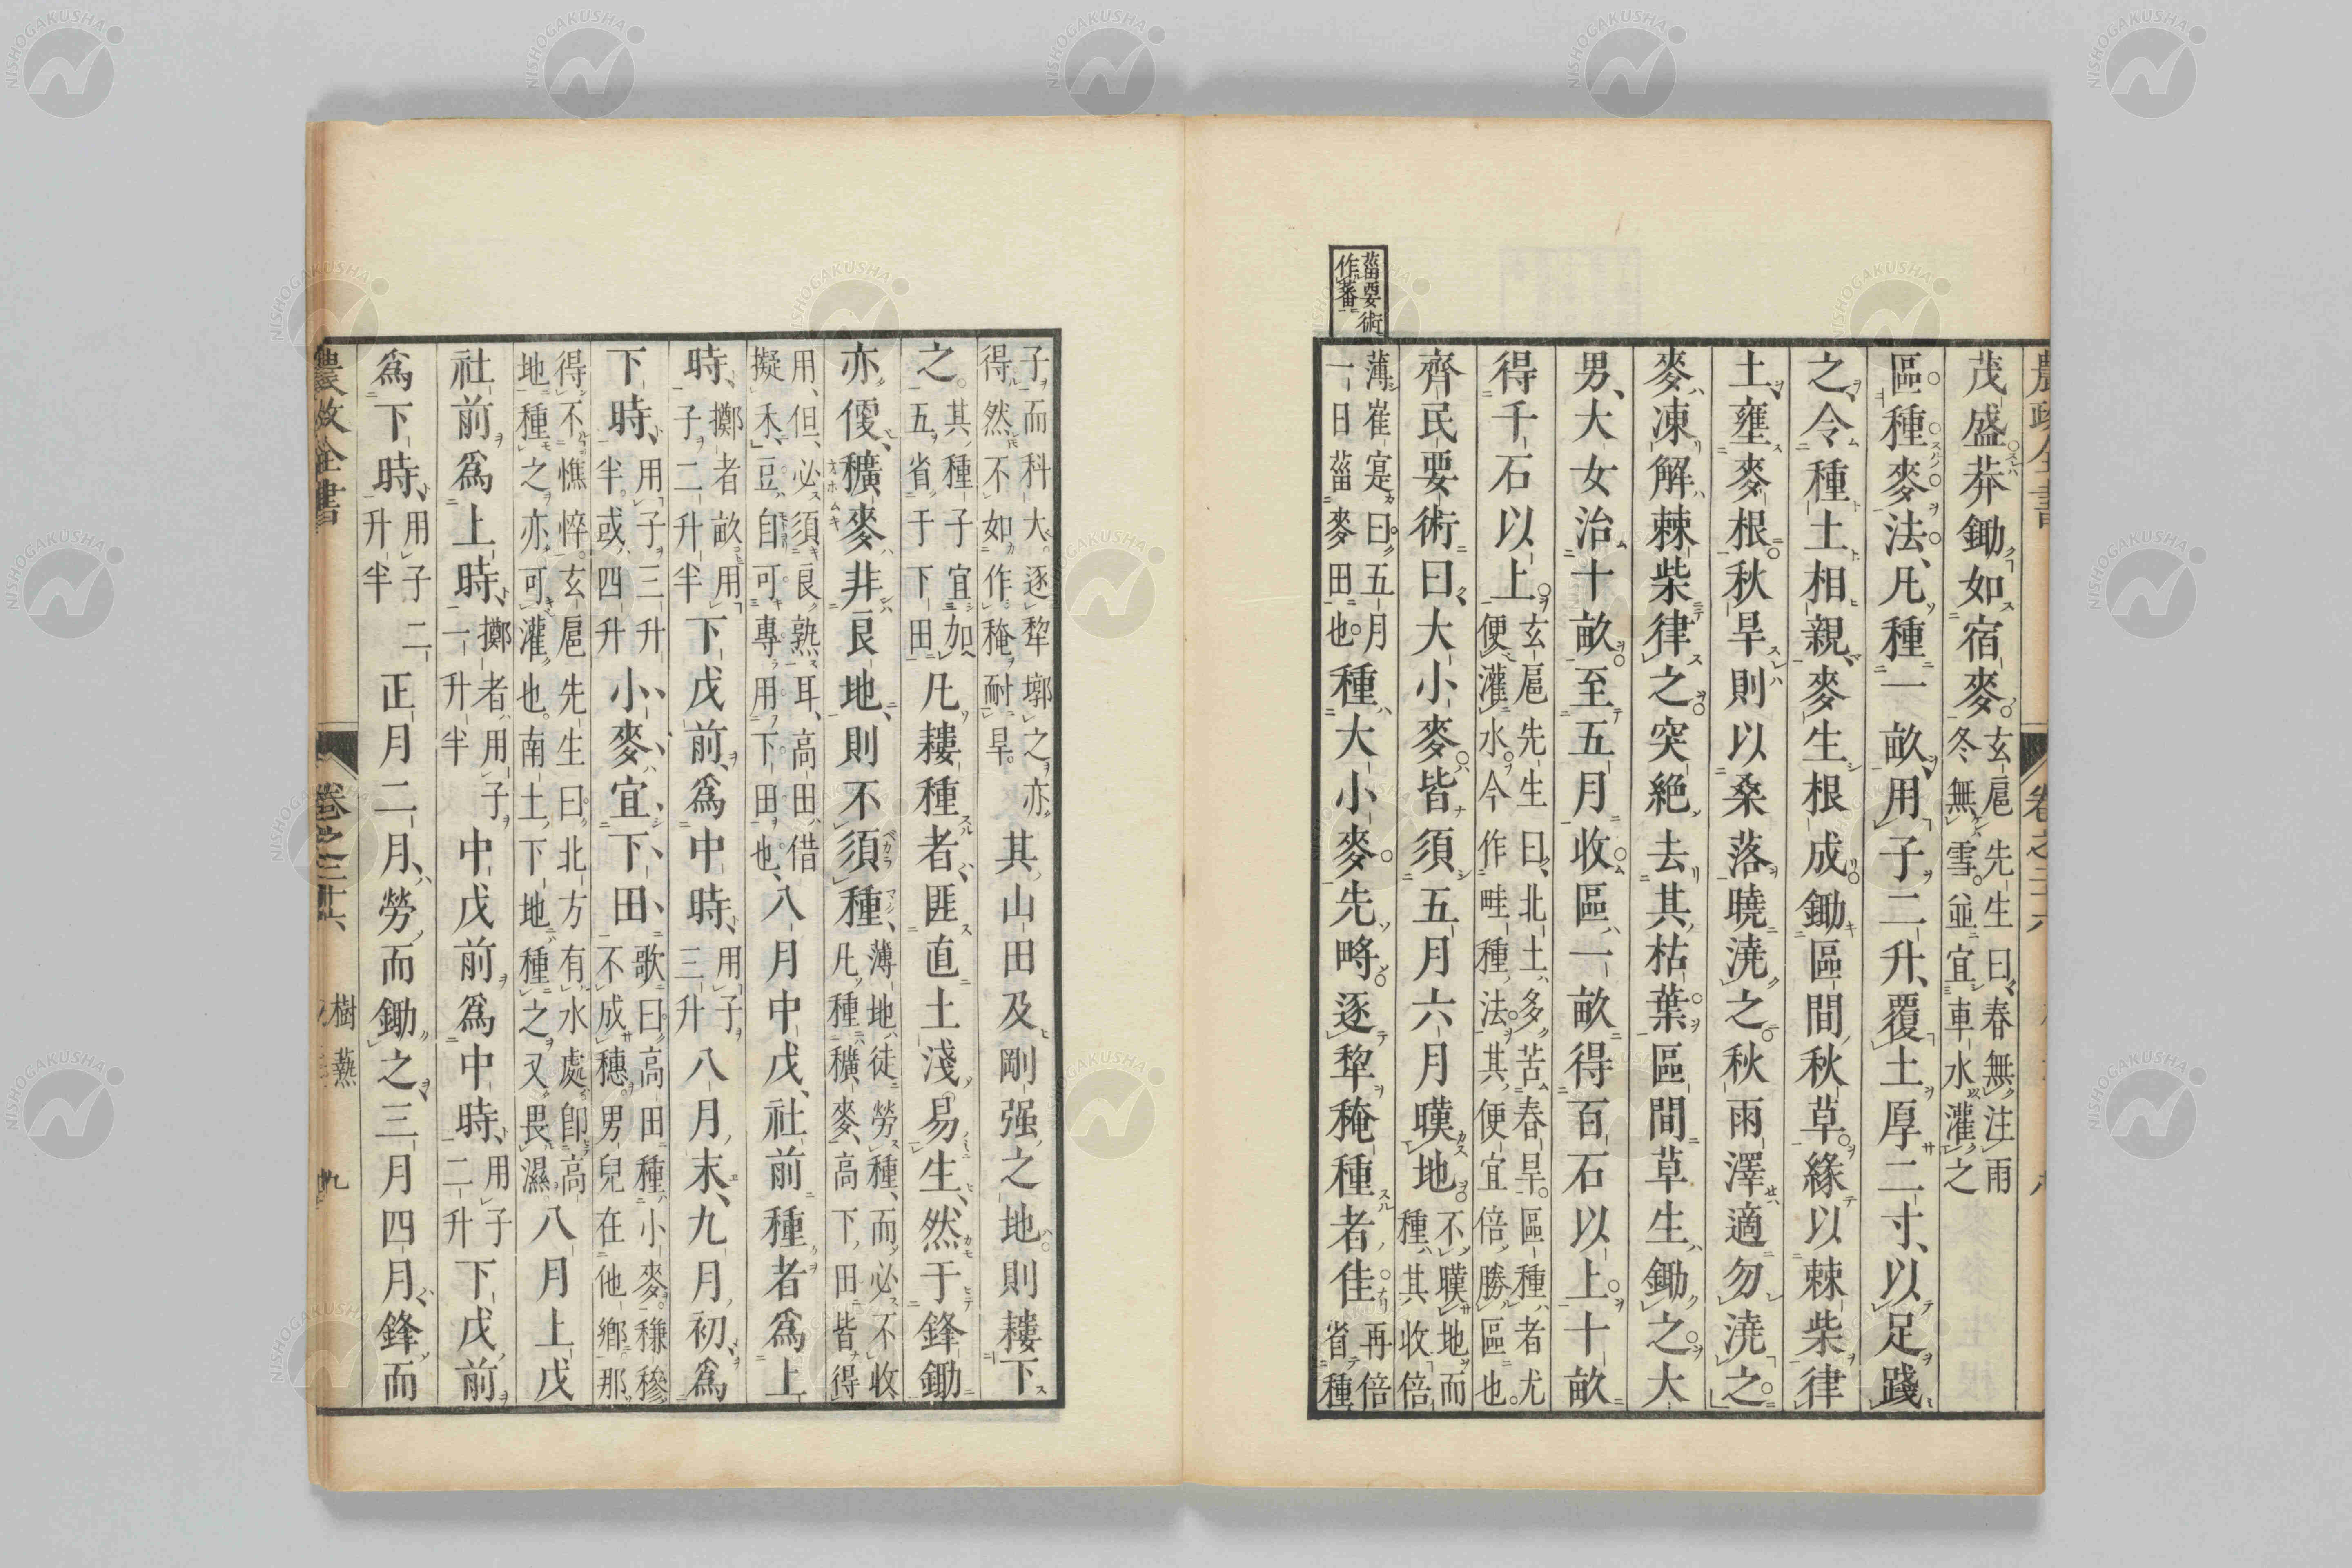 菑要術
作蕃
茂盛莽鋤如宿麥玄扈先生曰春無注雨冬無雪並宜車水灌之
區種麥法凡種一畝用子二升覆土厚二寸以足踐
之令種土相親麥生根成鋤區間秋草緣以棘柴律
土壅麥根秋旱則以桑落曉澆之秋雨澤適勿澆之
麥凍解棘柴律之突絶去其枯葉區間草生鋤之大
男大女治十畝至五月收區一畝得百石以上十畝
得千石以上玄扈先生曰北土多苦春旱區種者尤便灌水今作畦種法其便宜倍勝區也
齊民要術曰大小麥皆須五月六月暵地不暵地而種其收倍
薄崔寔曰五月一日菑麥田也種大小麥先略逐犂䅖種者佳再倍省種
子而科大逐犂墎之亦得然不如作䅖耐旱其山田及剛强之地則耬下
之其種子宜加五省于下田凡耬種者匪直土淺易生然于鋒鋤
亦便穬麥非良地則不須種薄地徒勞種而必不收凡種穬麥高下田皆得
用但必須良熟耳高田借擬禾豆自可專用下田也八月中戊社前種者爲上
時擲者畝用子二升半下戊前爲中時用子三升八月末九月初爲
下時用子三升半或四升小麥宜下田歌曰高田種小麥稴穇不成穗男兒在他鄉那
得不憔悴玄扈先生曰北方有水處卽高地種之亦可灌也南土下地種之又畏濕八月上戊
社前爲上時擲者用子一升半中戊前爲中時用子二升下戊前
爲下時用子二升半正月二月勞而鋤之三月四月鋒而
農政全書
卷之二十六
樹蓺
九